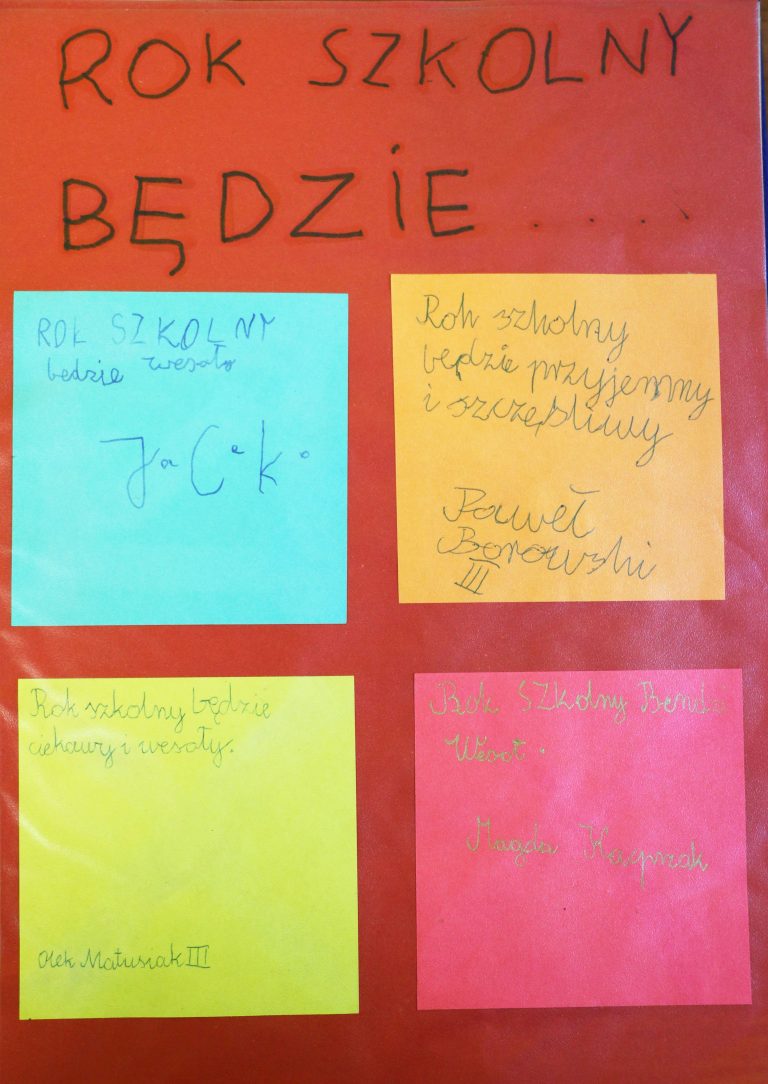 ROK SZKOLNY
BĘDZIE ....
ROK SZKOLNY
będzie wesoło
JaCek.
Rok szkolny
będzie przyjemny
i szczęśliwy
Paweł
Borowski
III
Rok szkolny będzie
ciekawy i wesoły.
Olek Matusiak III
Rok SZkolny
Wesoł.
Magda